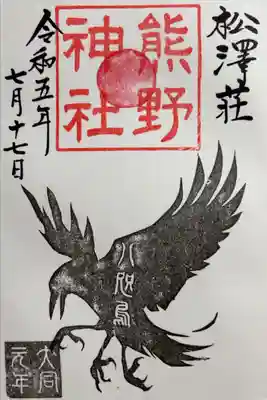 松澤荘
熊野
神社
令和五年
七月十七日
八咫烏
大同
元年